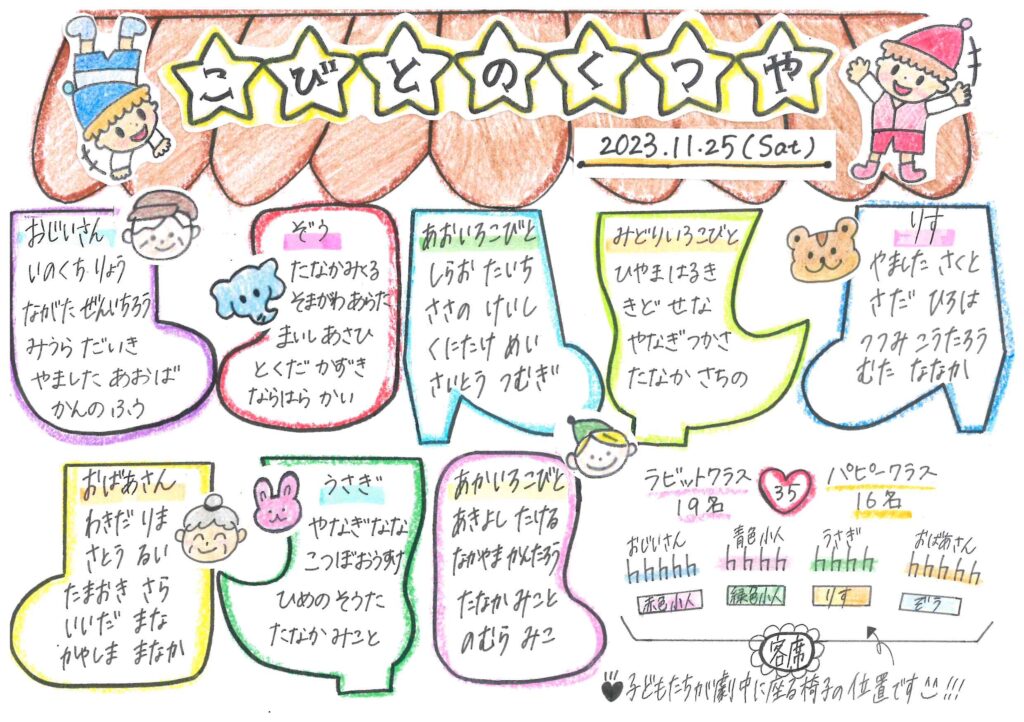 こびとのくつや
2023.11.25(Sat)
おじいさん
いのくち りょう
ながた ぜんいちろう
みうら だいき
やました あおば
かんの ふう
ぞう
たなかみくる
そまがわ あらた
まいし あさひ
とくだ かずき
ならはら かい
あおいろこびと
しらお たいち
ささの けいし
くにたけ めい
さいとう つむぎ
みどりいろこびと
ひやま はるき
きど せな
やなぎ つかさ
たなか さちの
りす
やました さくと
さだ ひろは
つつみ こうたろう
むた ななか
おばあさん
わきだ りま
さとう るい
たまおき さら
いいだ まな
かやしま まなか
うさぎ
やなぎ なな
こつぼ おうすけ
ひめの そうた
たなか みこと
あかいろこびと
あきよし たける
なかやま かんたろう
たなか みこと
のむら みこ
ラビットクラス
19名
35
パピークラス
16名
おじいさん
青色小人
うさぎ
おばあさん
赤色小人
緑色小人
りす
ぞう
客席
子どもたちが劇中に座る椅子の位置です!!!